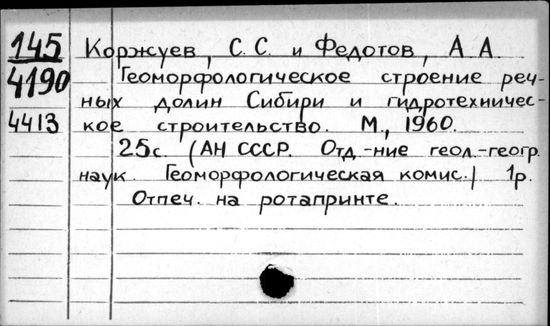 145
4190
4413
Коржуев, С. С. и Федотов, А А.
Геоморфологическое строение реч-
ных долин Сибири и гидротехничес-
кое строительство. М., 1960.
25с. (АН СССР. Отд.-ние геол.-геогр.
наук. Геоморфологическая комис.) 1р.
Отпеч. на ротапринте.